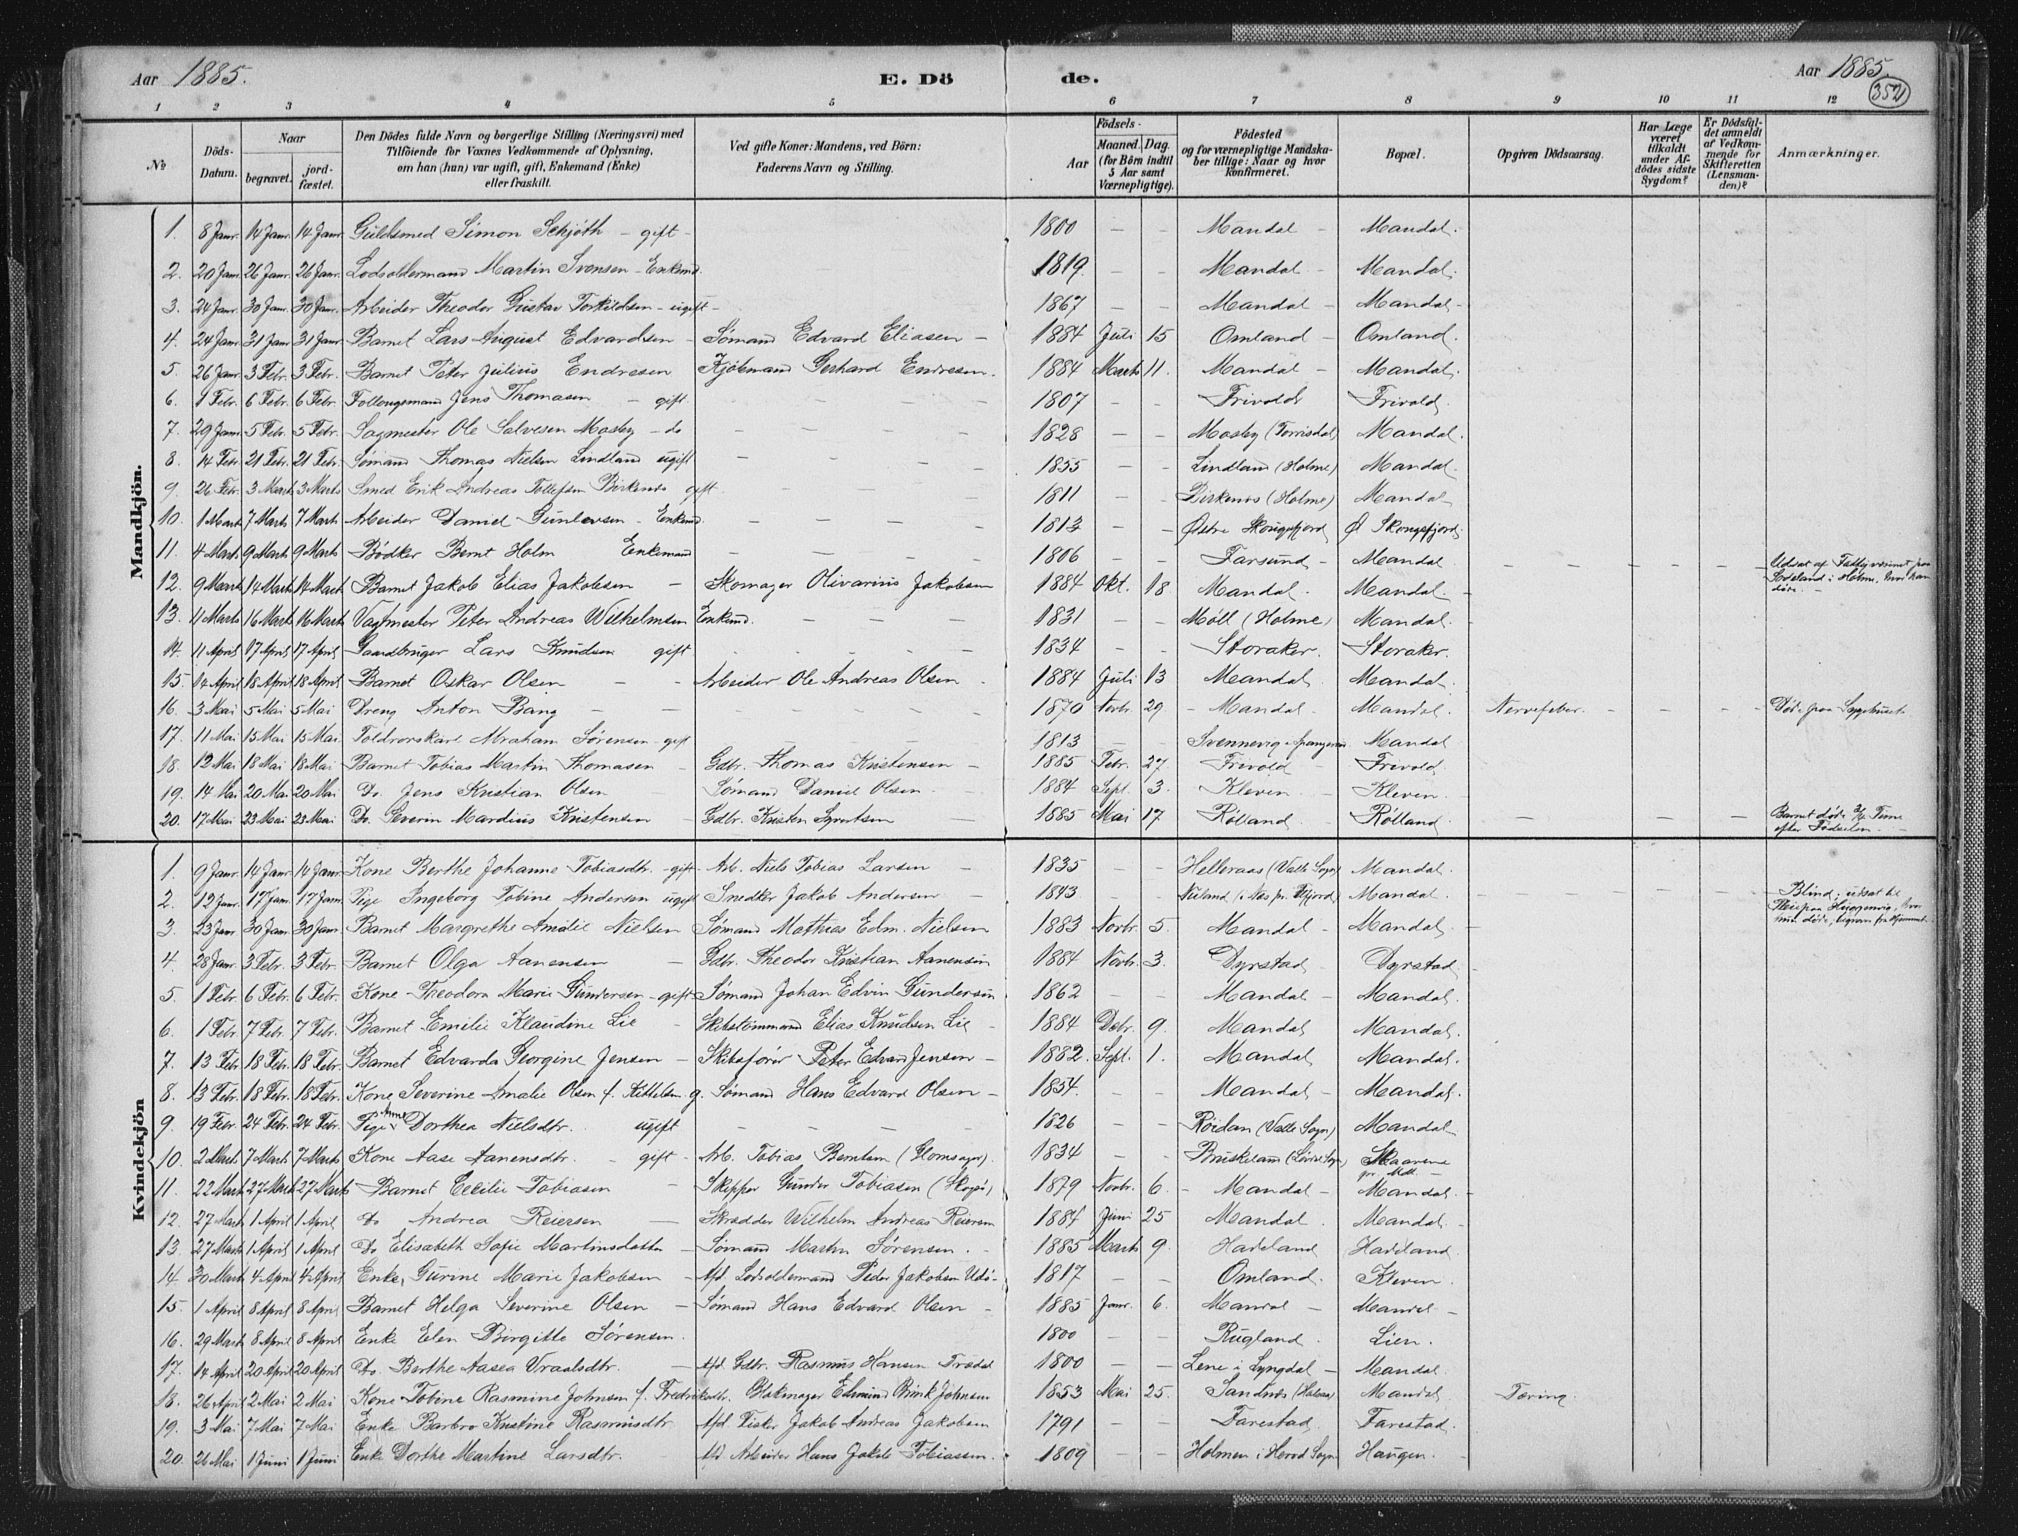 Aar 1885. E. Dö de. Aar 1885.
352
1 2 3 4 5 6 7 8 9 10 11 12
No
Döds-Datum.
Naar
begravet.
jord-fæstet.
Den Dödes fulde Navn og borgerlige Stilling (Næringsvei) med
Tilföiende for Voxnes Vedkommende af Oplysning,
om han (hun) var ugift, gift, Enkemand (Enke)
eller fraskilt.
Ved gifte Koner: Mandens, ved Börn:
Faderens Navn og Stilling.
Födsels-
Aar
Maaned. Dag.
(for Börn indtil
5 Aar samt
Værnepligtige).
Födested
og for værnepligtige Mandska-
ber tillige: Naar og hvor
konfirmeret.
Bopæl.
Opgiven Dödsaarsag.
Har Læge
været
tilkaldt
under Af-
dödes sidste
Sygdom?
Er Dödsfal-
det anmeldt
af Vedkom-
mende for
Skifteretten
(Lensman-
den)?
Anmærkninger.
Mandkjön.
1. 8 Janr. 14 Janr. 14 Janr. Guldsmed Simon Schjöth - gift - 1800 - - Mandal - Mandal.
2. 20 Janr. 26 Janr. 26 Janr. Lodsoldermand Martin Svensen - Enkemd. 1819 - - Mandal - Mandal.
3. 24 Janr. 30 Janr. 30 Janr. Arbeider Theodor Gustav Torkildsen - ugift - 1867 - - Mandal - Mandal -
4. 24 Janr. 31 Janr. 31 Janr. Barnet Lars August Edvardsen - Sømand Edvard Eliasen - 1884 Juli 15 Omland - Omland.
5. 26 Janr. 3 Febr. 3 Febr. Barnet Peter Julius Endresen Kjøbmand Gerhard Endresen. 1884 Marts 11. Mandal - Mandal.
6. 1 Febr. 6 Febr. 6 Febr. Follougsmand Jens Thomasen - gift. - - - 1807 - - Frivold Frivold.
7. 29 Janr. 5 Febr. 5 Febr. Sagmester Ole Salvesen Mosby - do - - - - 1828 - - Mosby (Torrisdal) Mandal.
8. 14 Febr. 21 Febr. 21 Febr. Sømand Thomas Nielsen Lindland ugift - - - - 1855 - - Lindland (Holme) Mandal.
9. 26 Febr. 3 Marts 3 Marts Smed Erik Andreas Tollefsen Birkenes gift - - - - 1811 - - Birkenes (Holme) Mandal
10. 1 Marts 7 Marts 7 Marts Arbeider Daniel Gunlevsen - Enkemd. - - - - 1813 - - Østre Skougsfjord Ø Skougsfjord
11. 4 Marts 9 Marts 9 Marts Bødker Bernt Holm Enkemand - - - - 1806 - - Farsund - Mandal - - - - Udsat af Fattigvæsenet paa
12. 9 Marts 14 Marts 14 Marts Barnet Jakob Elias Jakobsen - Skomager Olivarius Jakobsen 1884 Okt. 18 Mandal. Mandal. - i Holme, hvor han døde. -
13. 11 Marts 16 Marts 16 Marts Vagtmester Peter Andreas Wilhelmsen Enkemd. - - - 1831 - - Møll (Holme) Mandal.
14. 11 April 17 April 17 April Gaardbruger Lars Knudsen gift - - - - 1834 - - Storaker. Storaker.
15. 14 April 18 April 18 April Barnet Oskar Olsen - - Arbeider Ole Andreas Olsen - 1884 Juli 13 Mandal. Mandal.
16. 3 Mai 5 Mai 5 Mai Dreng Anton Bang - - - - - 1870 Novbr. 29 - Mandal. Mandal. Nervefeber. - - - Døde paa Sygehuset
17. 11 Mai 15 Mai 15 Mai Toldrorskarl Abraham Sørensen - gift - - - 1813 - - Svennevig i Spangereid Mandal
18. 12 Mai 18 Mai 18 Mai Barnet Tobias Martin Thomasen - Gdbr. Thomas Kristensen - 1885 Febr. 27 Frivold - Frivold.
19. 14 Mai 20 Mai 20 Mai Do. Jens Kristian Olsen - Sømand Daniel Olsen 1884 Sept. 3. Kleven - Kleven.
20. 17 Mai 23 Mai 23 Mai Do. Severin Mardius Kristensen - Gdbr. Kristen Syvertsen 1885 Mai 17 Rølland - Rølland. - - - Barnet døde 3/4 Time
efter Fødselen. -
Kvindekjön
1. 9 Janr. 14 Janr. 14 Janr. Kone Berthe Johanne Tobiasdtr. - gift - Arb. Niels Tobias Larsen - 1835 - - Helleraas (Valle Sogn) Mandal.
2. 12 Janr. 17 Janr. 17 Janr. Pige Ingeborg Tobine Andersen ugift Snedker Jakob Andersen - 1843 - - Mandal. - - - - Blind; udsat til
3. 23 Janr 30 Janr. 30 Janr. Barnet Margrethe Amalie Nielsen Sømand Mathias Edm. Nielsen 1883 Novbr. 5. Mandal - Mandal. - hun døde,
4. 28 Janr. 3 Febr. 3 Febr. Barnet Olga Aanensen - Gdbr. Theodor Kristian Aanensen 1884 Novbr. 3. Dyrstad - Dyrstad.
5. 1 Febr. 6 Febr. 6 Febr. Kone Theodora Marie Gundersen - gift Sømand Johan Edvin Gundersen 1862 - - Mandal - Mandal.
6. 1 Febr. 7 Febr. 7 Febr. Barnet Emilie Klaudine Lie - Skibstømmermd Elias Knudsen Lie - 1884 Debr. 9. Mandal Mandal.
7. 13 Febr 18 Febr. 18 Febr. Barnet Edvarda Georgine Jensen - Skibsfører Peter Edvard Jensen - 1882. Sept. 1. Mandal Mandal.
8. 13 Febr. 18 Febr. 18 Febr. Kone Severine Amalie Olsen f. Kittelsen g. Sømand Hans Edvard Olsen - 1854. - - Mandal - Mandal.
9. 19 Febr. 24 Febr. 24 Febr. Pige Anne Dorthea Nielsdtr. ugift - - - - 1826 - - Røidan (Valle Sogn) Mandal
10. 2 Marts 7 Marts 7 Marts Kone Aase Aanensdtr. - gift - Arb. Tobias Berntsen (Glomsager). 1834 - - Bruskeland Skaarene
pr. Mdl.
11. 22 Marts 27 Marts 27 Marts Barnet Cecilie Tobiasen - Skipper Gunder Tobiasen (Skogsø) 1879 Novbr. 6. - Mandal - Mandal. -
12. 27 Marts 1 April 1 April Do Andrea Reiersen - Skrædder Wilhelm Andreas Reiersen 1884 Juni 25 Mandal. Mandal.
13. 27 Marts 1 April 1 April Do Elisabeth Sofie Martinsdatter - Sømand Martin Sørensen. - 1885 Marts 9. Haaeland Haaeland.
14 30 Marts 4 April 4 April Enke, Gurine Marie Jakobsen - Afd. Lodsoldermand Peder Jakobsen Udø - 1817 - - Omland. Kleven.
15. 1 April 8 April 8 April Barnet Helga Severine Olsen - Sømand Hans Edvard Olsen - 1885 Janr. 6. Mandal - Mandal -
16. 29 Marts 8 April 8 April Enke Elen Birgitte Sørensen. 1800 - - Rugland. Lien.
17. 14 April 20 April 20 April Do. Berthe Aasea Vraalsdtr. - Afd. Gdbr. Rasmus Hansen Frædal 1800 - - Lene i Lyngdal - Mandal.
18. 26 April 2 Mai 2 Mai Kone Tobine Rasmine Johnsen f. Fredriksdtr. Blokmager Edmind Brink Johnsen 1853 Mai 25. Sandnes Mandal Tæring
19. 3 Mai 7 Mai 7 Mai Enke Barbro Kristine Rasmusdtr. Afd. Fisker Jakob Andreas Jakobsen 1791 - - Farestad. Farestad.
20. 26 Mai 1 Juni 1 Juni Enke Dorthe Martine Larsdtr. Afd. Arbeider Hans Jakob Tobiassen. 1809 - - Holmen i Herad Sogn Haugen.